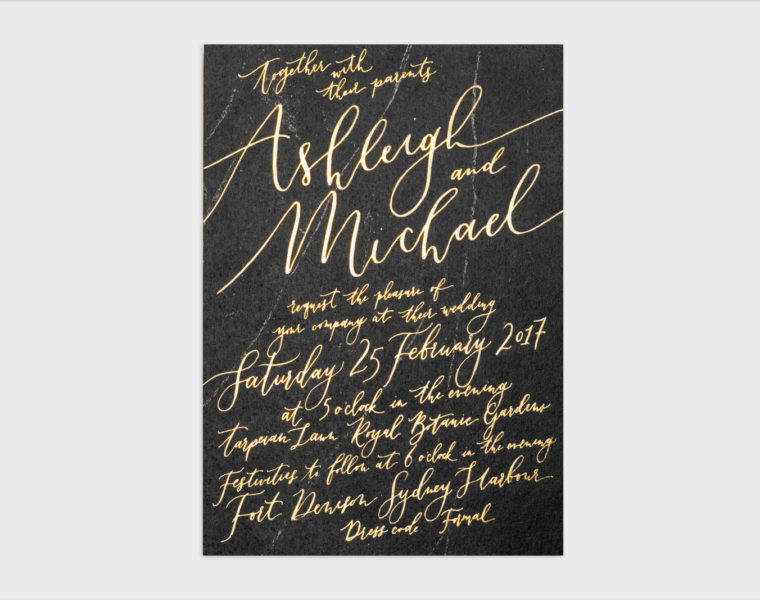 Together with
their parents
Ashleigh
and
Michael
request the pleasure of
your company at their wedding
Saturday 25 February 2017
at 5 o'clock in the evening
Tarpeian Lawn Royal Botanic Gardens
Festivities to follow at 6 o'clock in the evening
Fort Denison Sydney Harbour
Dress code Formal